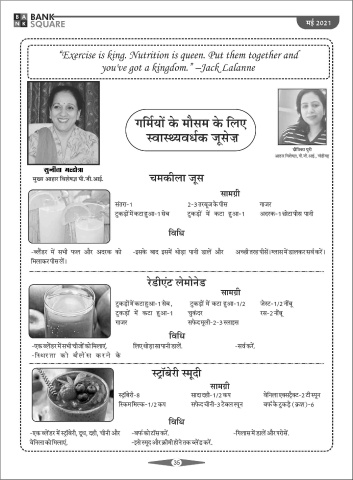 BANK
BANK
SQUARE
मई 2021
“Exercise is king. Nutrition is queen. Put them together and
you've got a kingdom.” –Jack Lalanne
गर्मियों के मौसम के लिए
स्वास्थ्यवर्धक जूसेज़
सुनीता मल्होत्रा
मुख्य आहार विशेषज्ञ पी.जी.आई.
दीपिका पुरी
आहार विशेषज्ञ, पी.जी.आई., चंडीगढ़
चमकीला जूस
सामग्री
संतरा-1 2-3 तरबूज के पीस गाजर
टुकड़ों में कटा हुआ-1 सेब टुकड़ों में कटा हुआ-1 अदरक-1 छोटा पीस पानी
विधि
-ब्लेंडर में सभी फल और अदरक को -इसके बाद इसमें थोड़ा पानी डालें और अच्छी तरह पीसें। ग्लास में डालकर सर्व करें।
मिलाकर पीस लें।
रेडीएंट लेमोनेड
सामग्री
टुकड़ों में कटा हुआ-1 सेब, टुकड़ों में कटा हुआ-1/2 जेस्ट-1/2 नींबू
टुकड़ों में कटा हुआ-1 चुकंदर रस-2 नींबू
गाजर सफेद मूली-2-3 स्लाइस
विधि
-एक ब्लेंडर में सभी चीजों को मिलाएं, लिए थोड़ा सा पानी डालें। -सर्व करें.
-स्थिरता को बैलेंस करने के
स्ट्रॉबेरी स्मूदी
सामग्री
स्ट्रॉबेरी-8 सादा दही-1/2 कप वेनिला एक्सट्रैक्ट-2 टी स्पून
स्किम मिल्क-1/2 कप सफेद चीनी-3 टेबल स्पून बर्फ के टुकड़े (क्रश)-6
विधि
-एक ब्लेंडर में स्ट्रॉबेरी, दूध, दही, चीनी और -बर्फ को टॉस करें. -गिलास में डालें और परोसें.
वेनिला को मिलाएं, -इसे स्मूद और क्रीमी होने तक ब्लेंड करें.
35